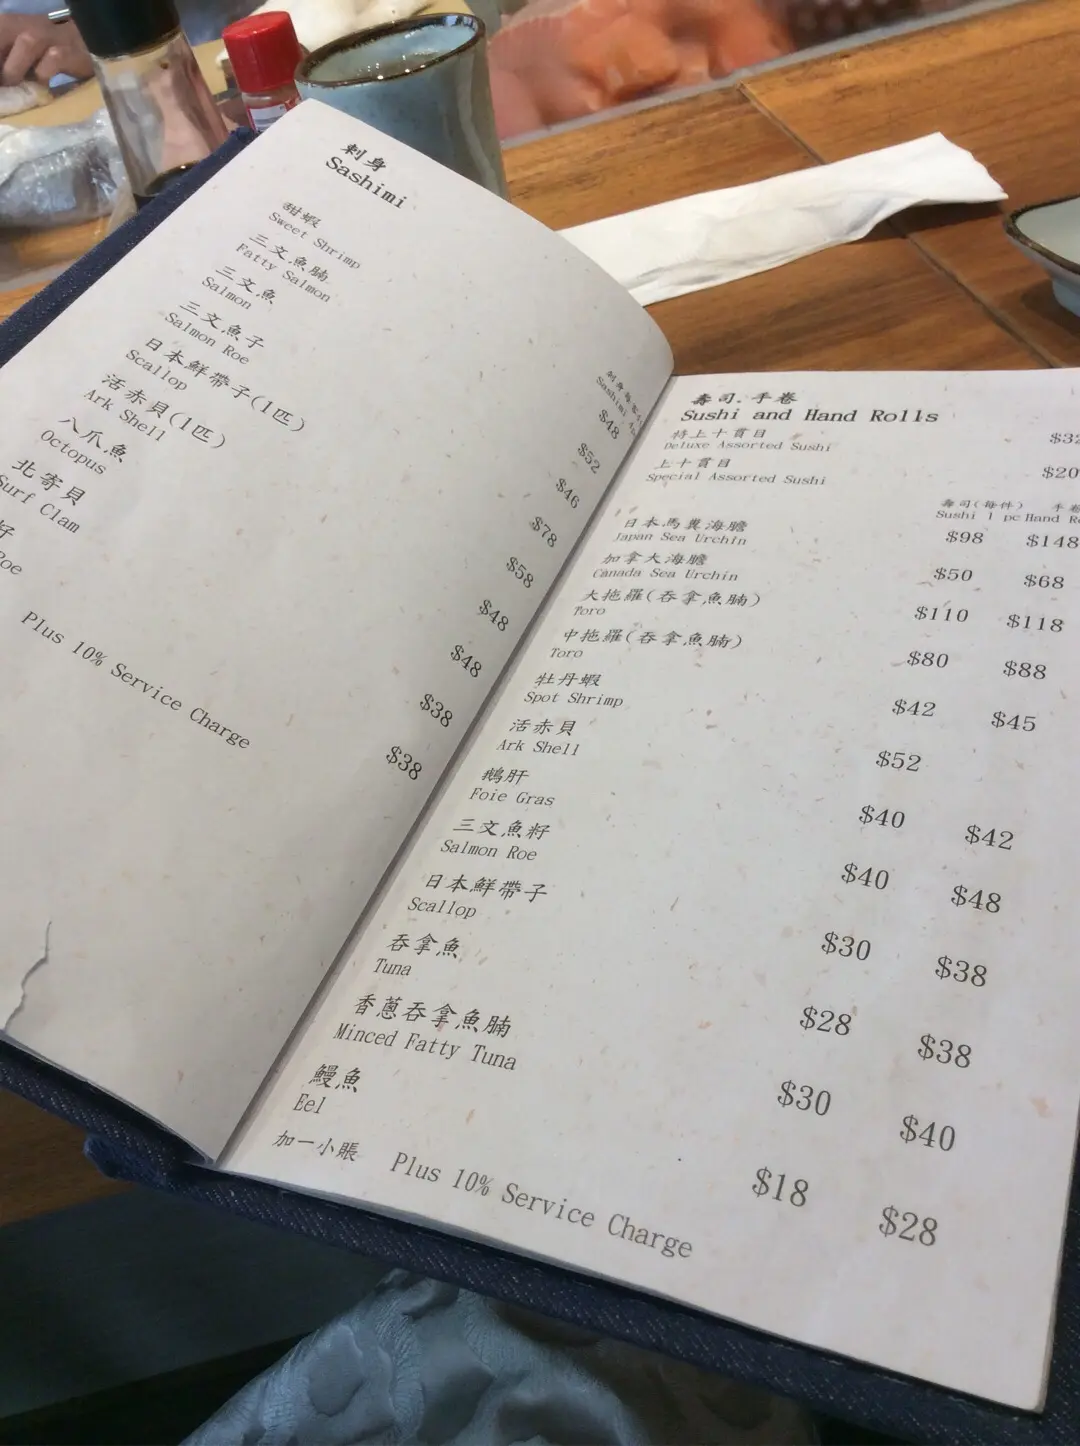 刺身
Sashimi
刺身每客
Sashimi
甜蝦
Sweet Shrimp
$48
三文魚腩
Fatty Salmon
$52
三文魚
Salmon
$46
三文魚子
Salmon Roe
$78
日本鮮帶子(1匹)
Scallop
$58
活赤貝(1匹)
Ark Shell
$48
八爪魚
Octopus
$48
北寄貝
Surf Clam
$38
籽
Roe
$38
Plus 10% Service Charge
壽司.手卷
Sushi and Hand Rolls
特上十貫目
Deluxe Assorted Sushi
上十貫目
Special Assorted Sushi
壽司(每件) 手卷
Sushi 1 pc Hand
日本馬糞海膽 $98 $148
Japan Sea Urchin
加拿大海膽 $50 $68
Canada Sea Urchin
大拖羅(吞拿魚腩) $110 $118
Toro
中拖羅(吞拿魚腩) $80 $88
Toro
牡丹蝦 $42 $45
Spot Shrimp
活赤貝 $52
Ark Shell
鵝肝 $40 $42
Foie Gras
三文魚籽 $40 $48
Salmon Roe
日本鮮帶子 $30 $38
Scallop
吞拿魚 $28 $38
Tuna
香蔥吞拿魚腩 $30 $40
Minced Fatty Tuna
鰻魚 $18 $28
Eel
加一小賬 Plus 10% Service Charge